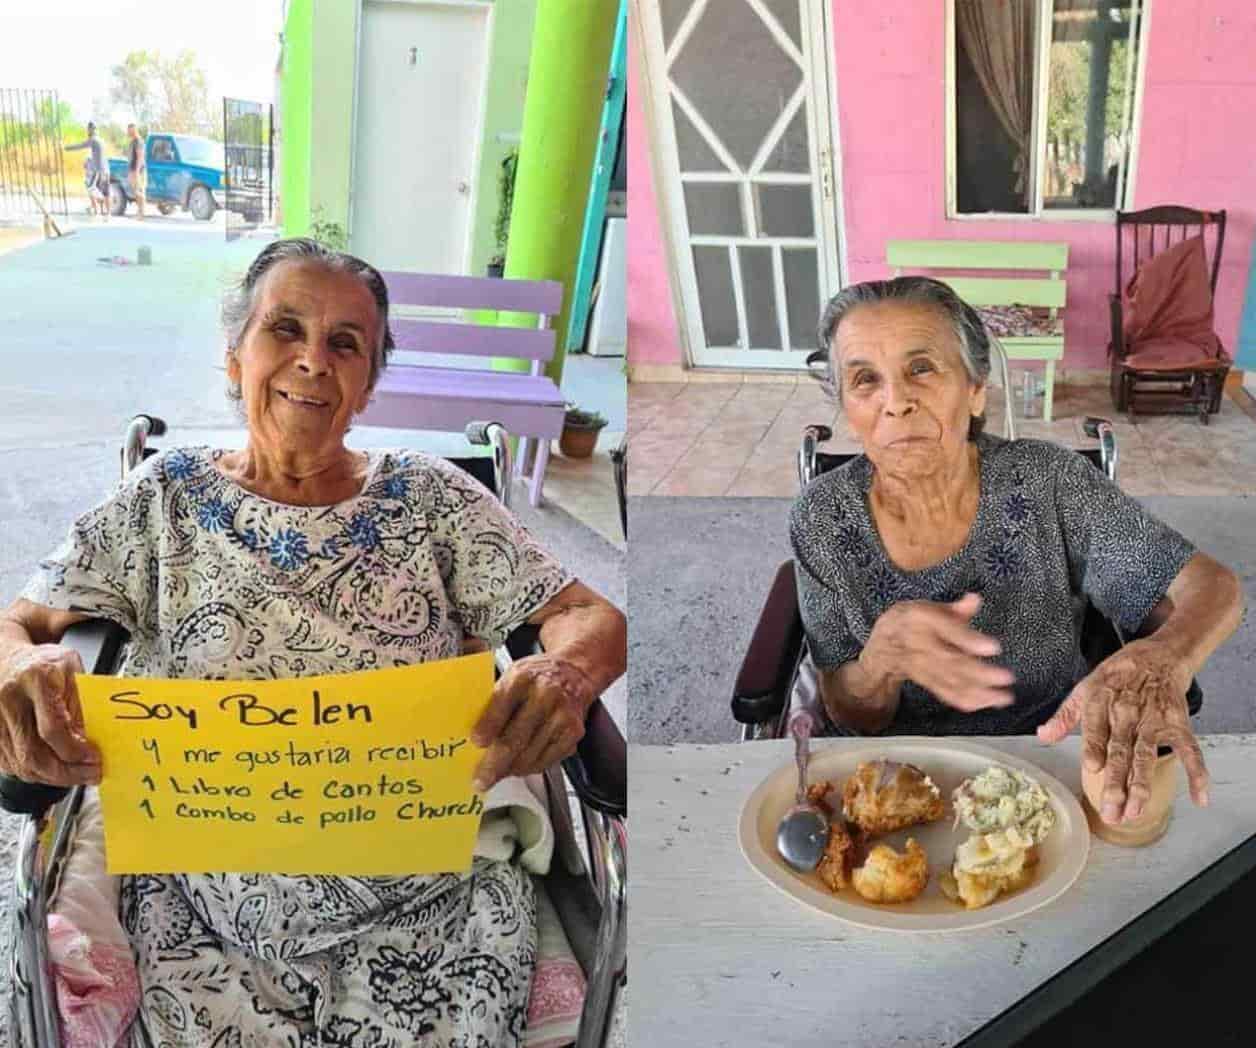 Soy Belen
y me gustaria recibir
1 Libro de Cantos
1 Combo de pollo Church